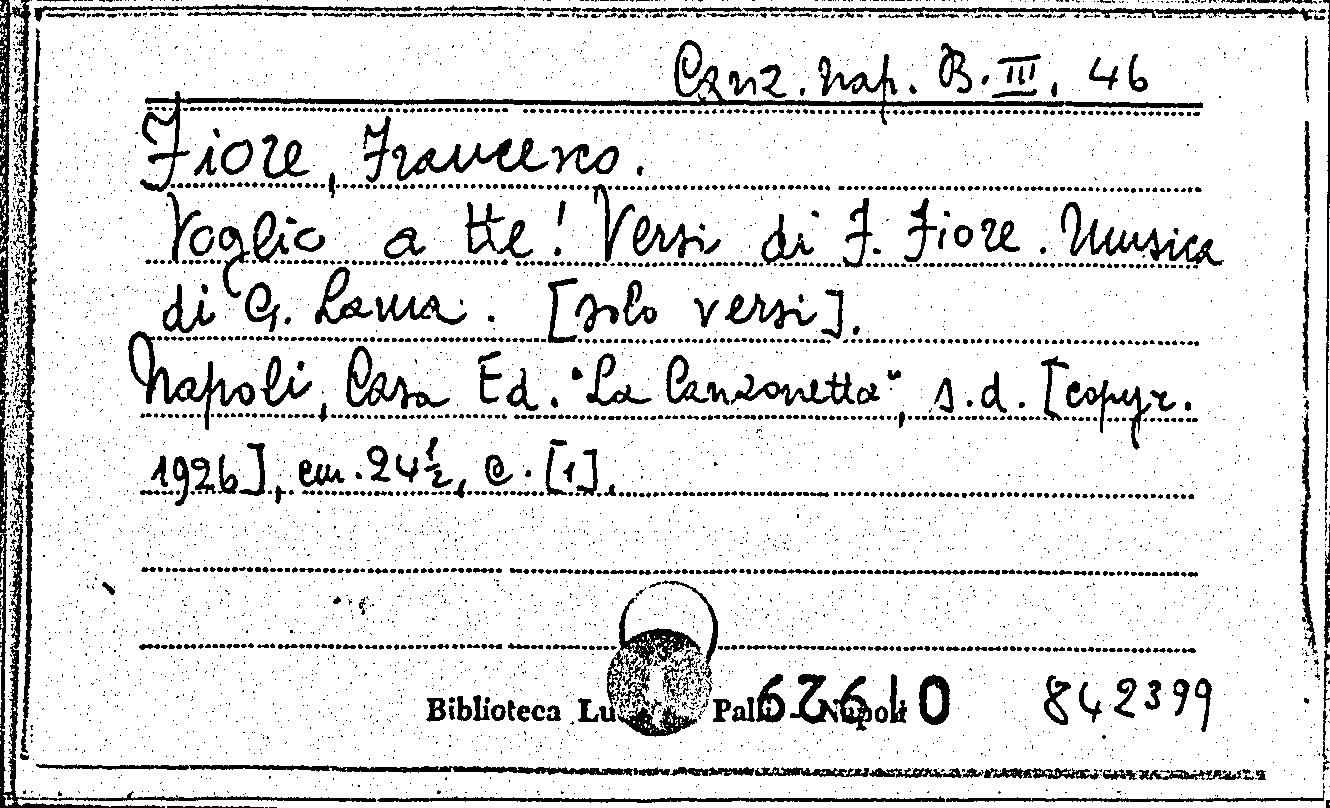 Canz. Nap. B. III. 46
Fiore, Francesco.
Voglio a tte! Versi di F. Fiore. Musica
di G. Lama. [solo versi].
Napoli, Casa Ed. "La Canzonetta", s.d. [copyr.
1926], cm. 24½, c. [1].
Biblioteca Napoli
62610 842399